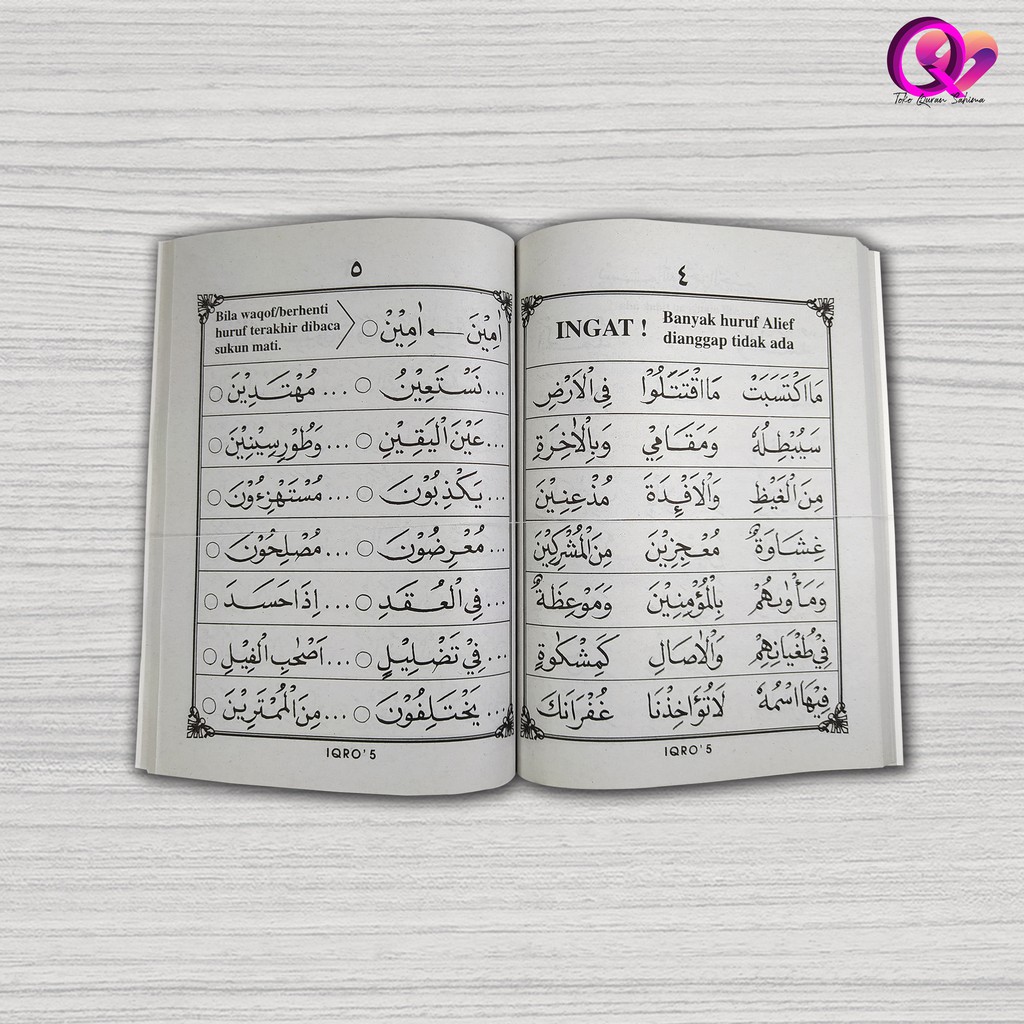 Toko Quran Sahima
٤
INGAT !
Banyak huruf Alief
dianggap tidak ada
مَا اكْتَسَبَتْ مَا اقْتَتَلُوْا فِى الْاَرْضِ
سَيُبْطِلُهٗ وَمَقَامِيْ وَبِالْاٰخِرَةِ
مِنَ الْغَيْظِ وَالْاَفْـِٕدَةَ مُذْعِنِيْنَ
غِشَاوَةٌ مُعْجِزِيْنَ مِنَ الْمُشْرِكِيْنَ
وَمَأْوٰىهُمْ بِالْمُؤْمِنِيْنَ وَمَوْعِظَةٌ
فِيْ طُغْيَانِهِمْ وَالْاٰصَالِ كَمِشْكٰوةٍ
فِيْهَا اسْمُهٗ لَا تُؤَاخِذْنَا غُفْرَانَكَ
IQRO' 5
٥
Bila waqof/berhenti
huruf terakhir dibaca
sukun mati.
اٰمِيْنَ ← اٰمِيْنْ ○
... نَسْتَعِيْنُ ○ ... مُهْتَدِيْنَ ○
... عَيْنَ الْيَقِيْنِ ○ ... وَطُوْرِ سِيْنِيْنَ ○
... يَكْذِبُوْنَ ○ ... مُسْتَهْزِءُوْنَ ○
... مُعْرِضُوْنَ ○ ... مُصْلِحُوْنَ ○
... فِى الْعُقَدِ ○ ... اِذَا حَسَدَ ○
... فِيْ تَضْلِيْلٍ ○ ... اَصْحٰبِ الْفِيْلِ ○
... يَخْتَلِفُوْنَ ○ ... مِنَ الْمُمْتَرِيْنَ ○
IQRO' 5